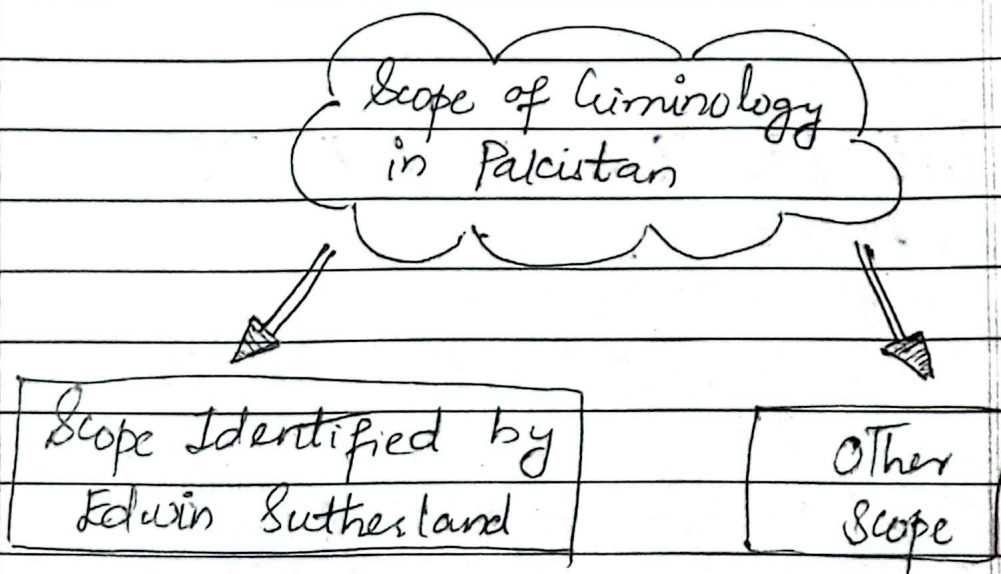 Scope of Criminology
in Pakistan
Scope Identified by
Edwin Sutherland
Other
Scope